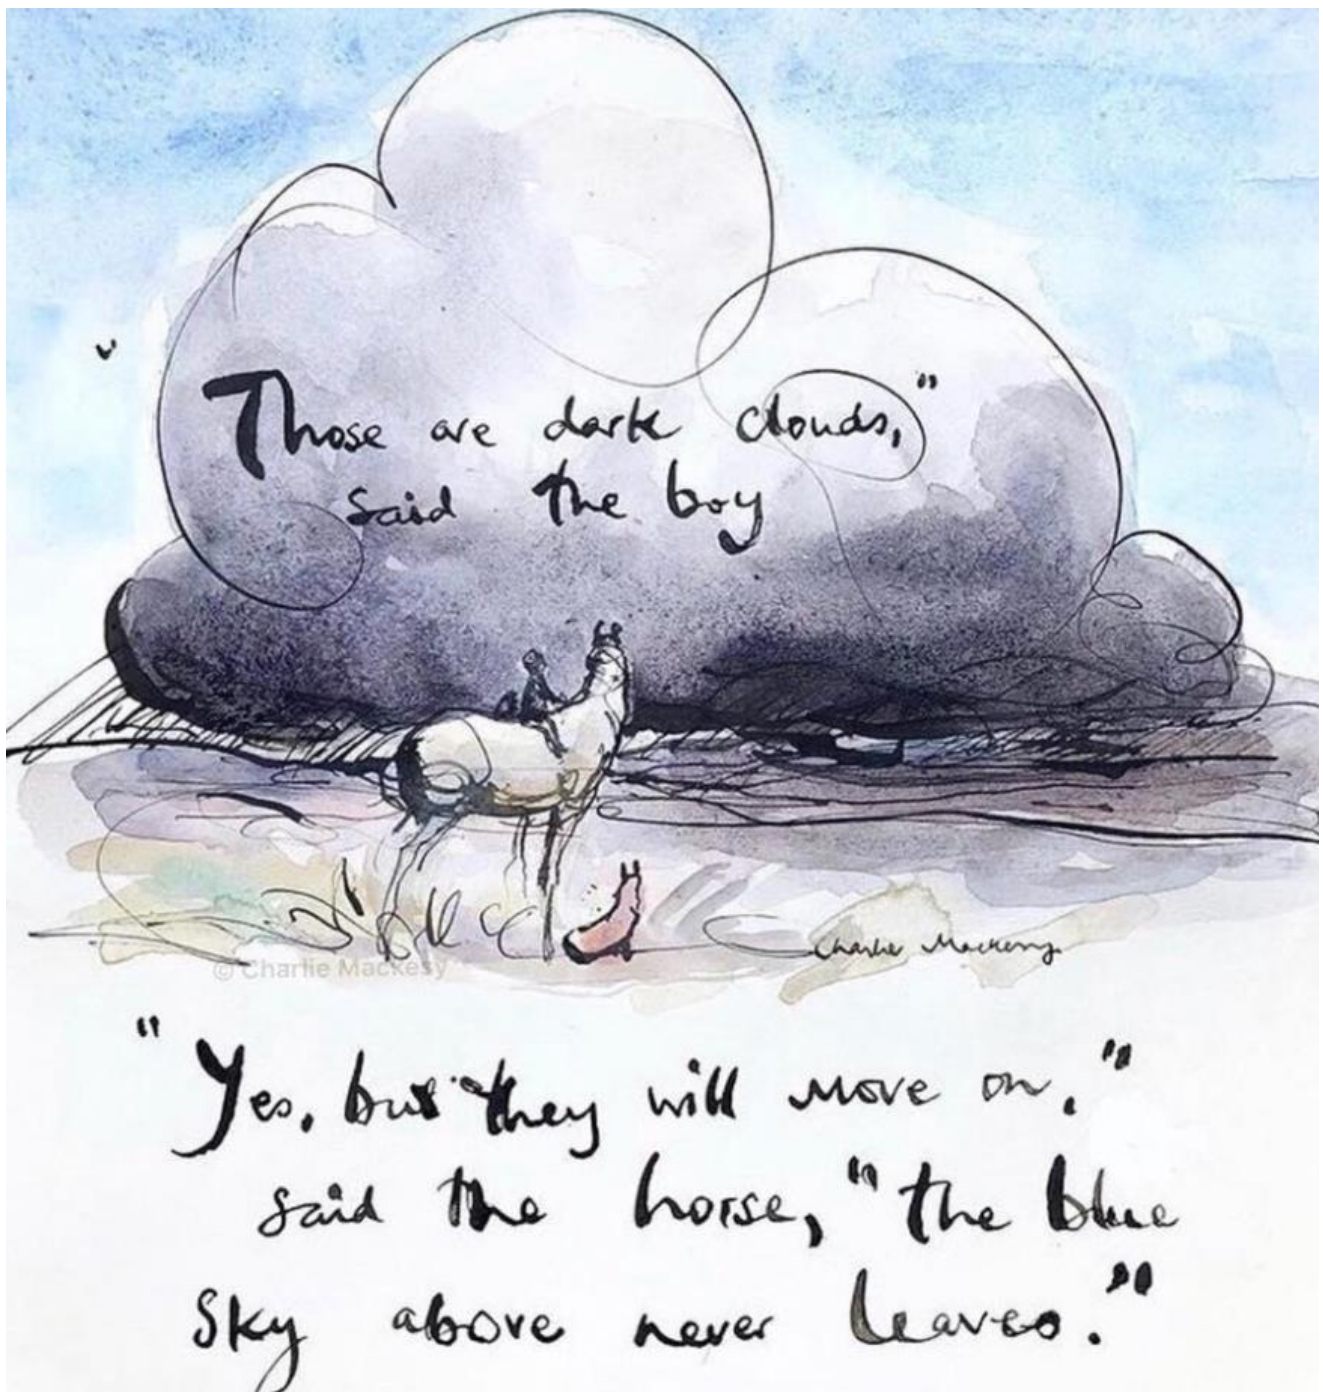 Those are dark clouds,"
said the boy
Charlie Mackesy
© Charlie Mackesy
"Yes, but they will move on."
said the horse, "the blue
sky above never leaves."